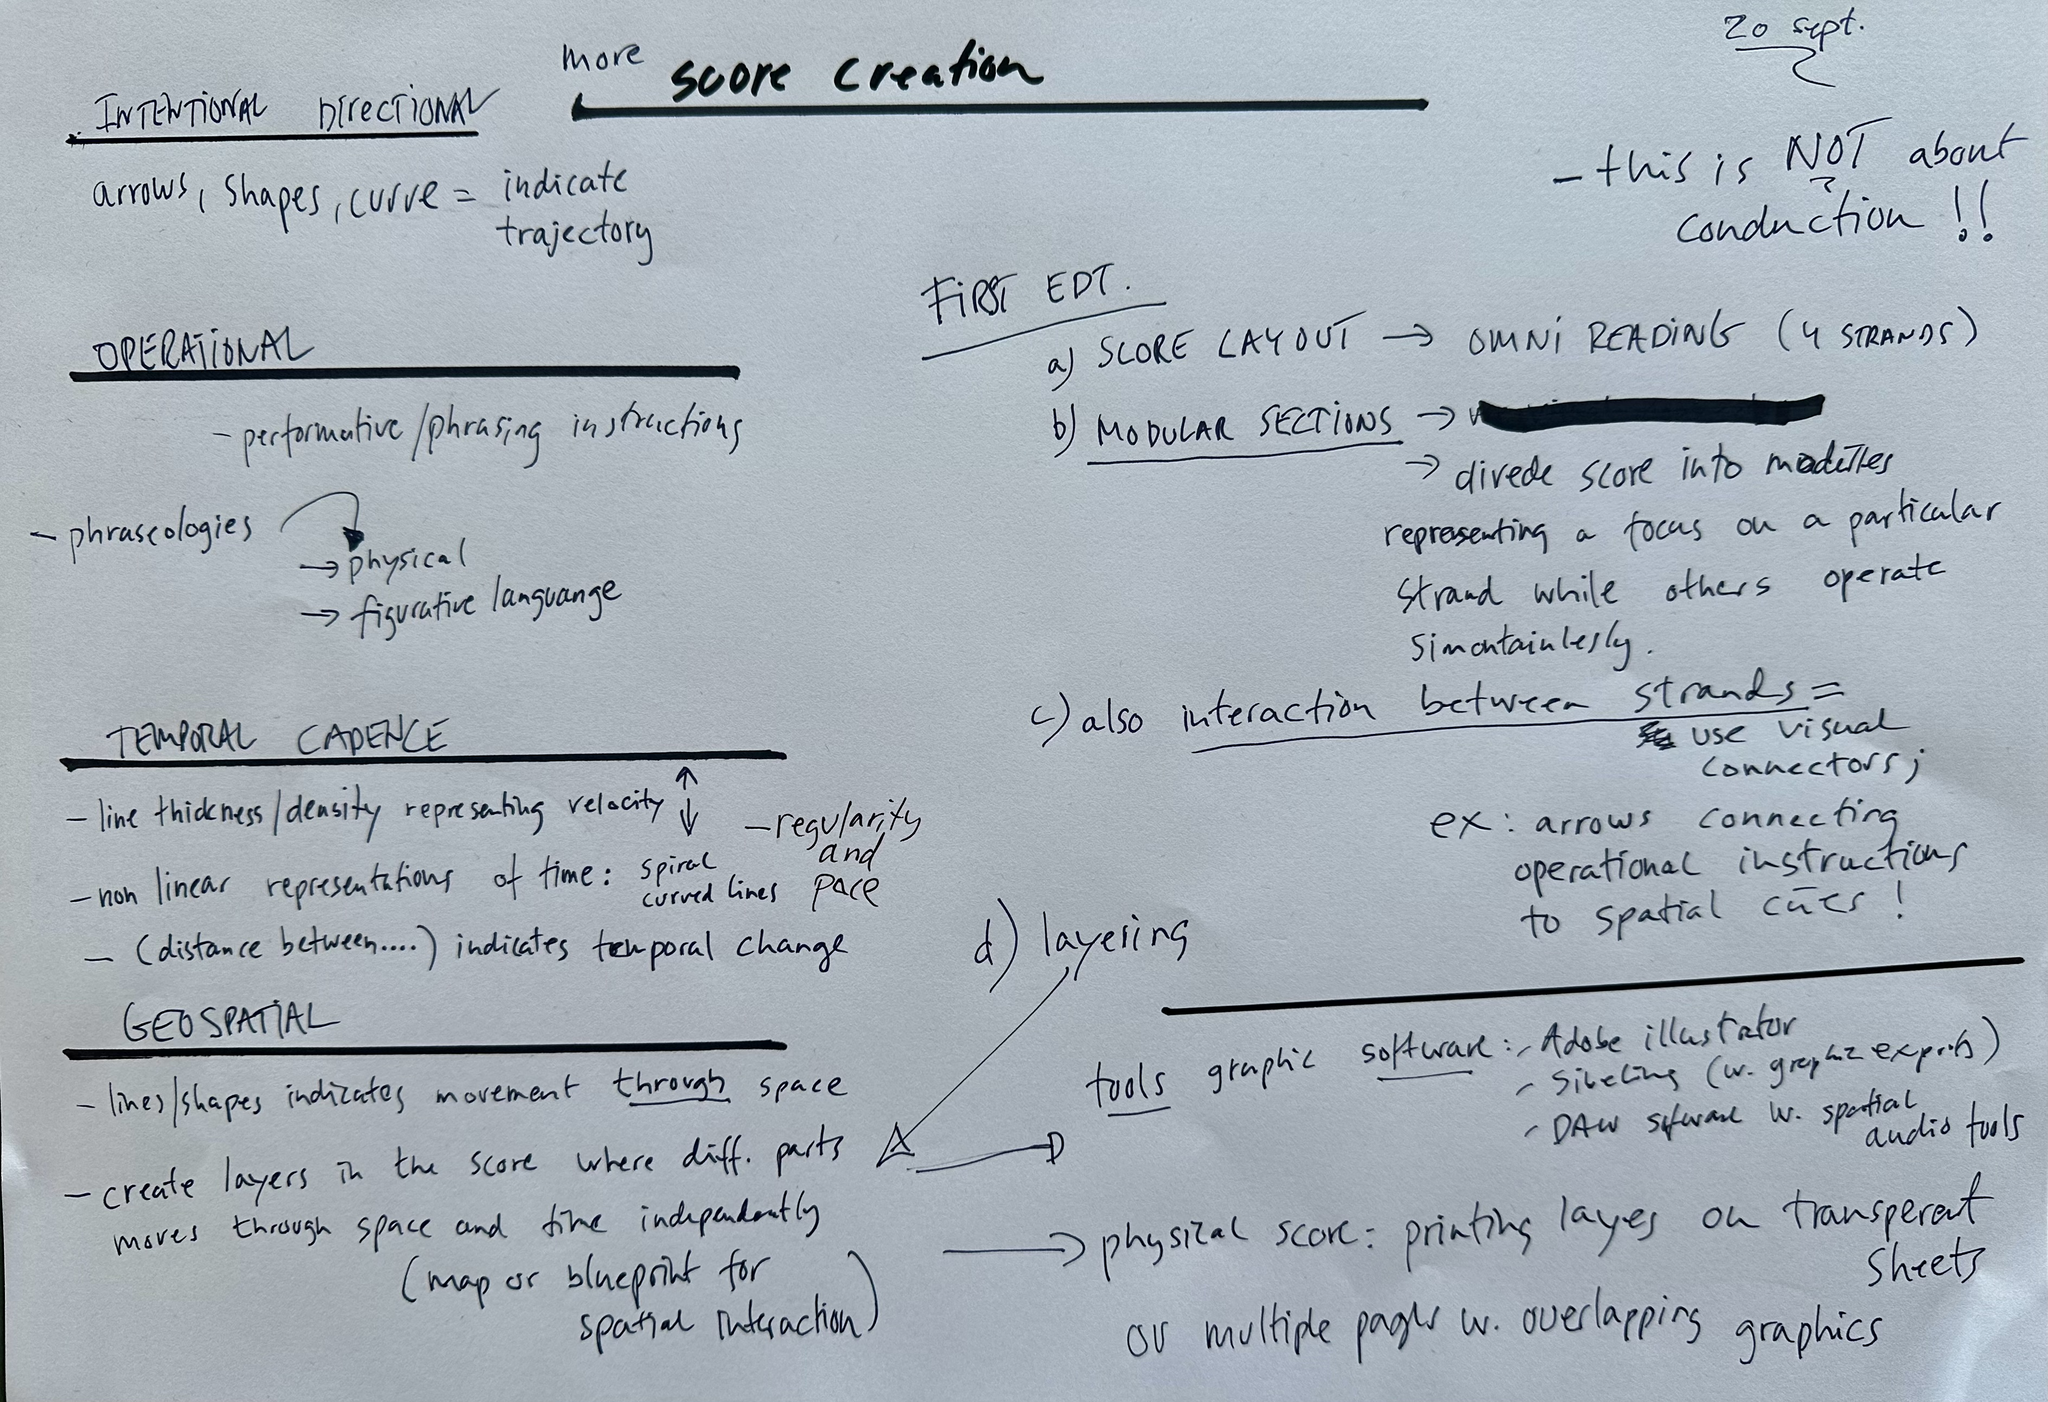 20 sept.
more score creation
INTENTIONAL DIRECTIONAL
arrows, shapes, curve = indicate
trajectory
OPERATIONAL
- performative/phrasing instructions
- phraseologies
→ physical
→ figurative languange
TEMPORAL CADENCE
- line thickness/density representing velocity
- regularity
and
pace
- non linear representations of time: spiral
curved lines
- (distance between....) indicates temporal change
GEOSPATIAL
- lines/shapes indicates movement through space
- create layers in the score where diff. parts
moves through space and time independently
(map or blueprint for
spatial interaction)
- this is NOT about
conduction !!
FIRST EDT.
a) SCORE LAYOUT → OMNI READING (4 STRANDS)
b) MODULAR SECTIONS →
→ divede score into modules
representing a focus on a particular
strand while others operate
simontainlesly.
c) also interaction between strands =
use visual
connectors;
ex: arrows connecting
operational instructions
to spatial cues !
d) layering
tools graphic software: - Adobe illustrator
- Sibeling (w. graphic exports)
- DAW software w. spatial
audio tools
→ physical score: printing layes on transperent
sheets
or multiple pages w. overlapping graphics